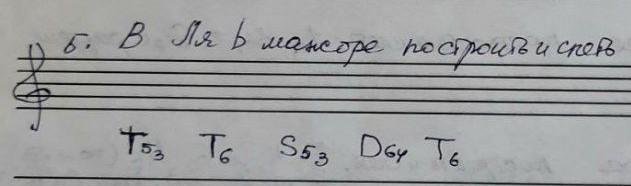 5. В Ля b мажоре построить и спеть
T53 T6 S53 D64 T6